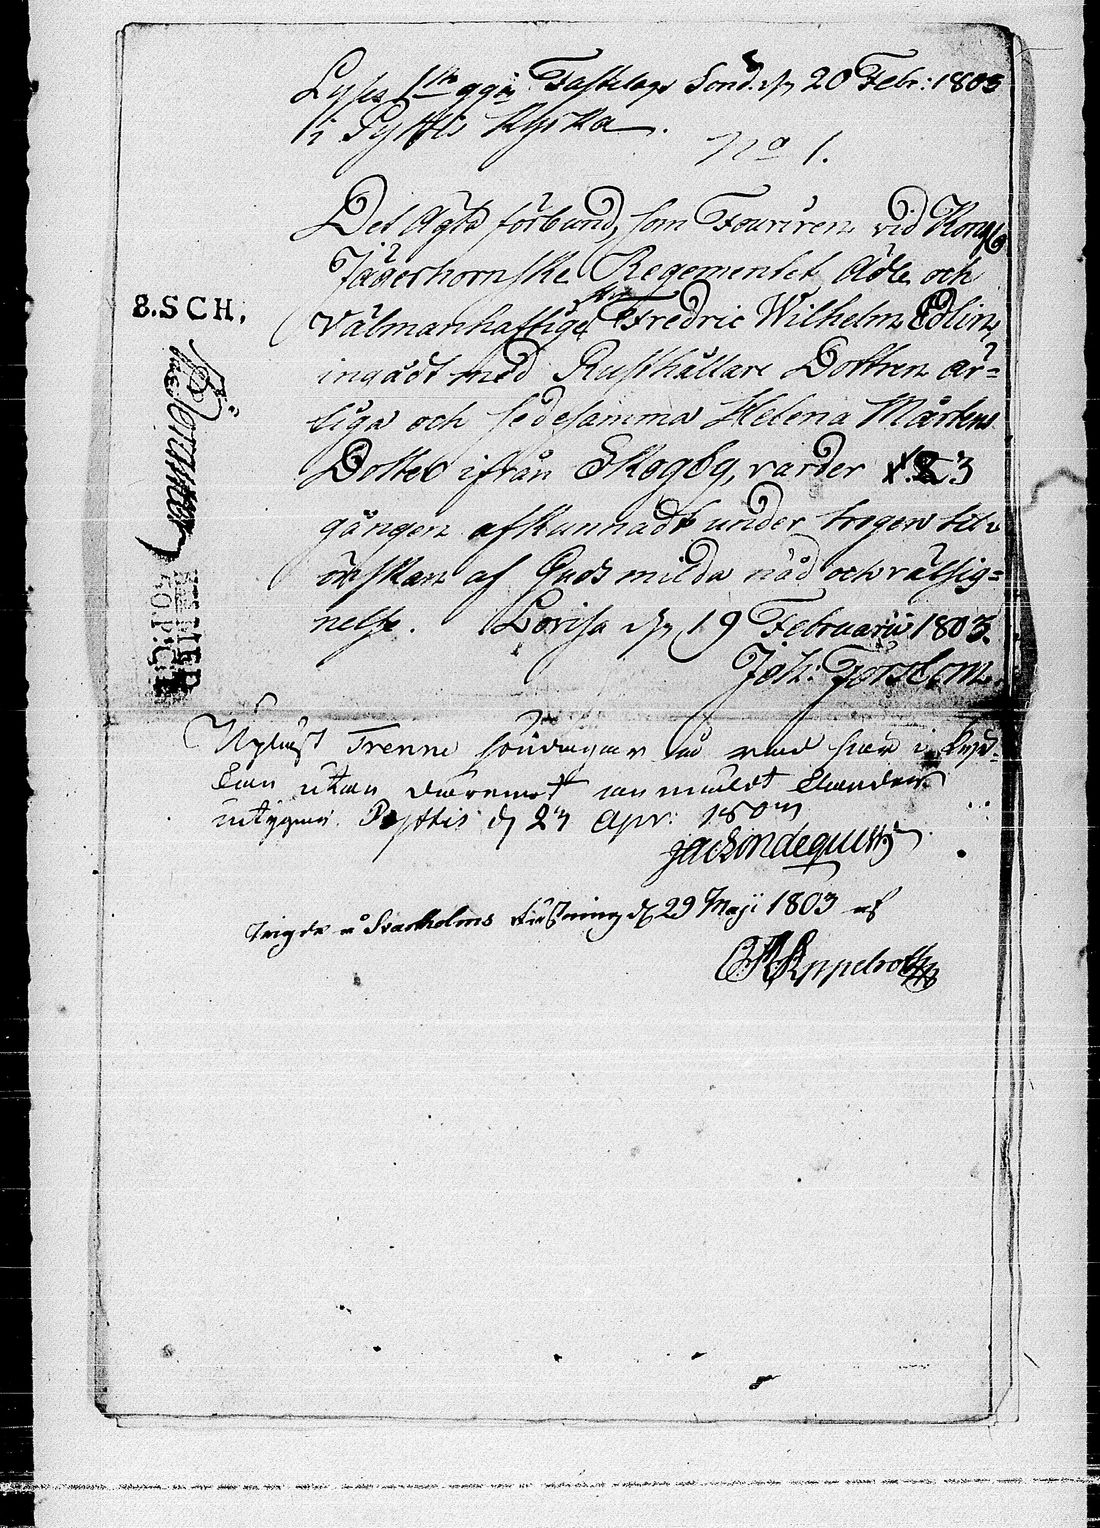 Lyses 1sta ggn Fastelags Sönd. d. 20 Febr: 1803
i Pyttis Kyrka.
No 1.
Det Ägta förbund, som Fouriren vid Kongl.
Jägerhornske Regementet Ädle och
8.SCH.
Välmanhaftige Hr Fredric Wilhelm Edlin,
ingådt med Rusthållare Dottren är=
liga och sedesamma Helena Mårtens
Dotter ifrån Skogby, varder 1.2.3
gången afkunnadt under trogen til
önskan af Guds milda nåd och välsig=
nelse. Lovisa d. 19 Februarii 1803.
Joh: Forsblom.
Uplyst Trenne söndagar
utan däremot anmäldt
intygar. Pyttis d. 23 Apr: 1803
Jac Bondequist
Vigde å Svartholms Fästning d. 29 Maji 1803 af
Appelroth